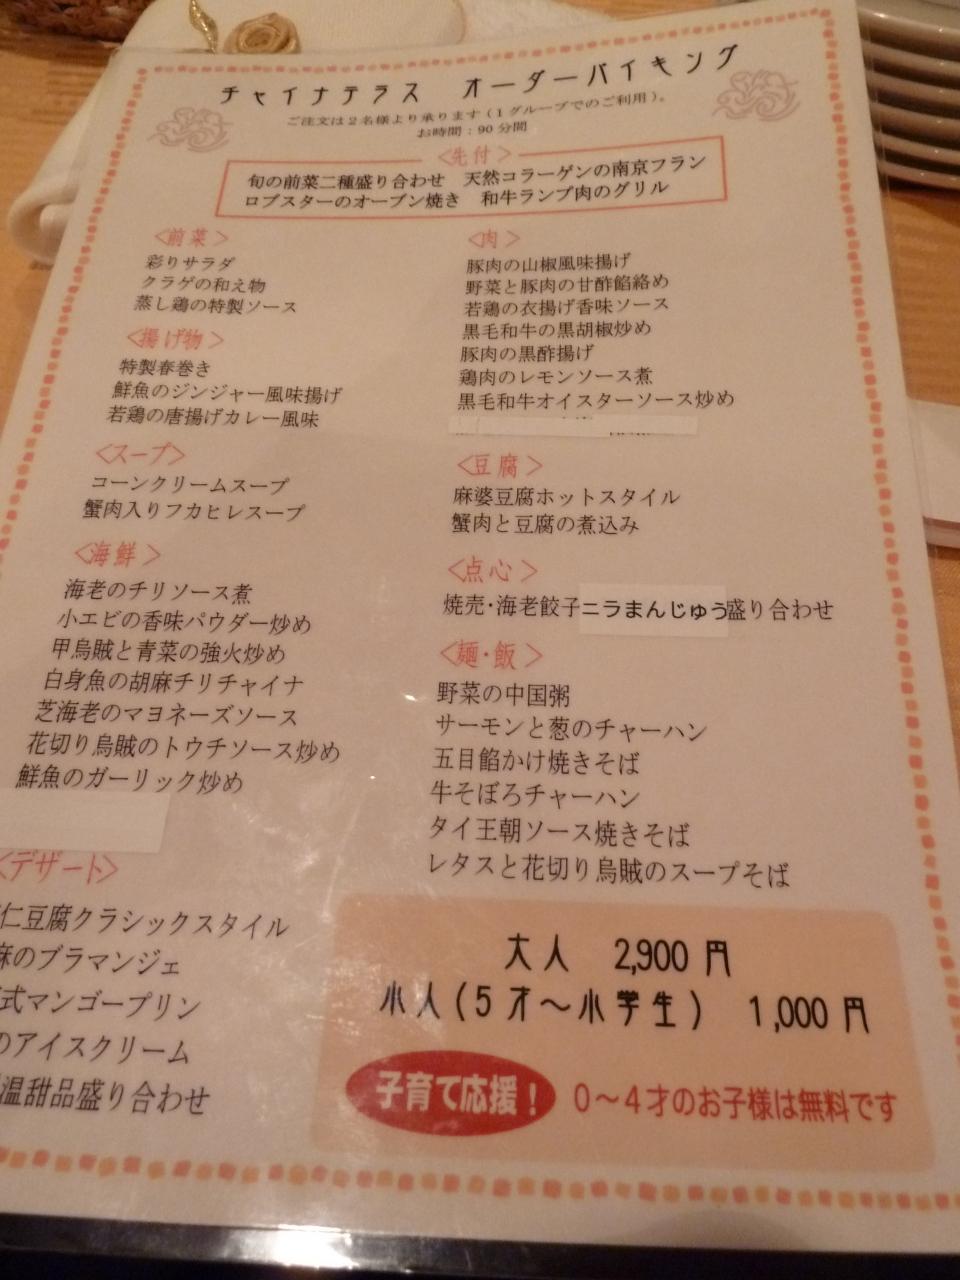 チャイナテラス　オーダーバイキング
ご注文は2名様より承ります（1グループでのご利用）。
お時間：90分間
＜先付＞
旬の前菜二種盛り合わせ　天然コラーゲンの南京フラン
ロブスターのオーブン焼き　和牛ランプ肉のグリル
＜前菜＞
彩りサラダ
クラゲの和え物
蒸し鶏の特製ソース
＜揚げ物＞
特製春巻き
鮮魚のジンジャー風味揚げ
若鶏の唐揚げカレー風味
＜スープ＞
コーンクリームスープ
蟹肉入りフカヒレスープ
＜海鮮＞
海老のチリソース煮
小エビの香味パウダー炒め
甲烏賊と青菜の強火炒め
白身魚の胡麻チリチャイナ
芝海老のマヨネーズソース
花切り烏賊のトウチソース炒め
鮮魚のガーリック炒め
＜デザート＞
仁豆腐クラシックスタイル
麻のブラマンジェ
式マンゴープリン
のアイスクリーム
温甜品盛り合わせ
＜肉＞
豚肉の山椒風味揚げ
野菜と豚肉の甘酢餡絡め
若鶏の衣揚げ香味ソース
黒毛和牛の黒胡椒炒め
豚肉の黒酢揚げ
鶏肉のレモンソース煮
黒毛和牛オイスターソース炒め
＜豆腐＞
麻婆豆腐ホットスタイル
蟹肉と豆腐の煮込み
＜点心＞
焼売・海老餃子ニラまんじゅう盛り合わせ
＜麺・飯＞
野菜の中国粥
サーモンと葱のチャーハン
五目餡かけ焼きそば
牛そぼろチャーハン
タイ王朝ソース焼きそば
レタスと花切り烏賊のスープそば
大人　2,900円
小人（5才～小学生）　1,000円
子育て応援！　0～4才のお子様は無料です